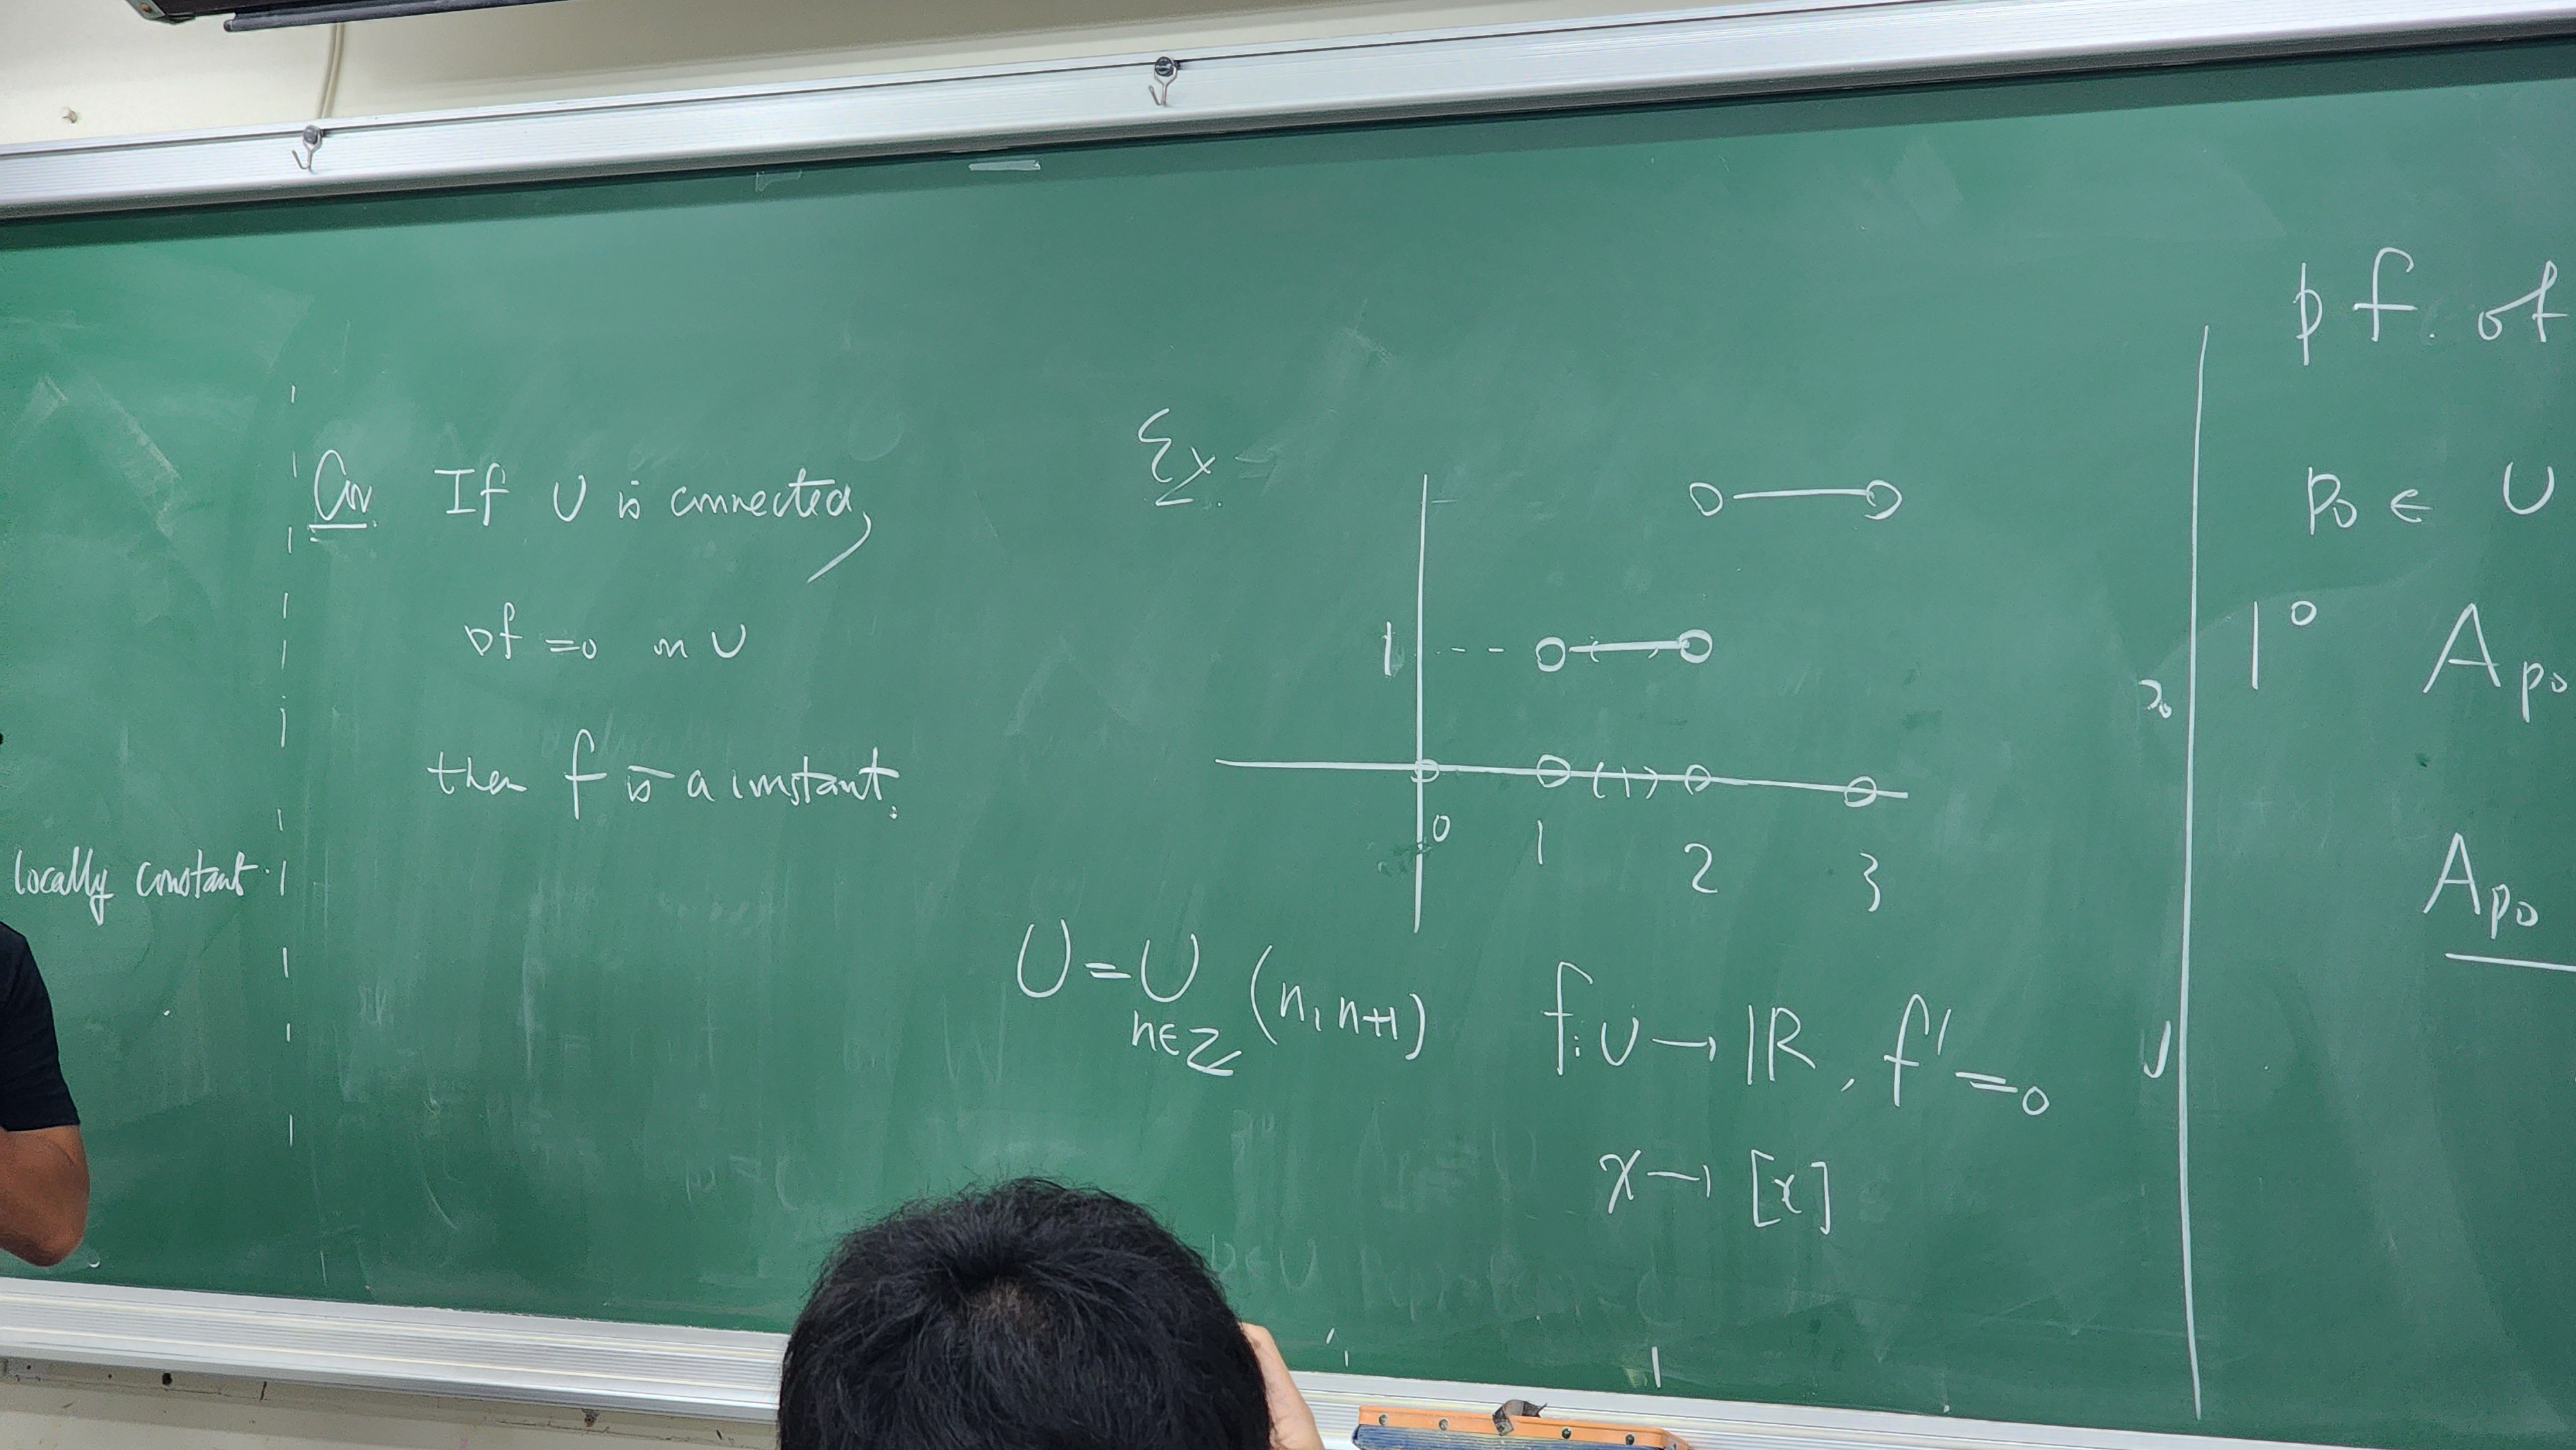 locally constant.
Cor. If U is connected,
Df = 0 on U
then f is a constant.
Ex
1
0 1 2 3
U = ∪ (n, n+1) f: U → ℝ, f' = 0
n∈ℤ
x → [x]
pf. of
p₀ ∈ U
1° A p₀
A p₀